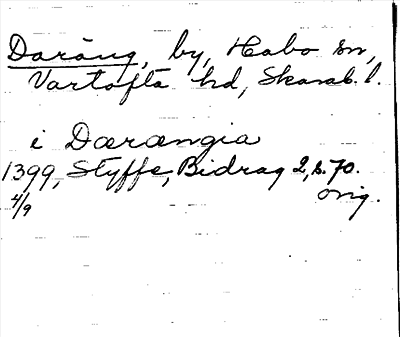 Daräng, by, Habo sn,
Vartofta hd, Skarab. l.
i Darængia
1399, Styffe, Bidrag 2, s. 70.
4/9 orig.